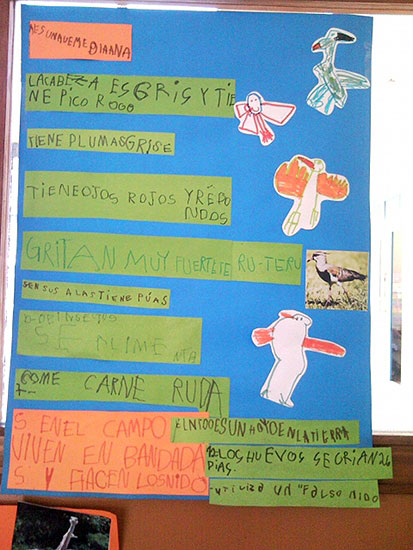 AES UN AVE MEDIAANA
LACABEZA ES GRIS Y TIE
NE PICO ROGO
TIENE PLUMAS GRISE
TIENE OJOS ROJOS Y REDO
NDOS
GRITAN MUY FUERTE TE RU-TERU
EN SUS ALAS TIENE PÚAS
SE ALIME
NTA
COME CARNE RUDA
S EN EL CAMPO
VIVEN EN BANDADA
S. Y HACEN LOS NIDO
EL NIDO ES UN HOYO EN LA TIERRA
LOS HUEVOS SE CRIAN 26
DIAS.
-UTILIZA UN "FALSO NIDO